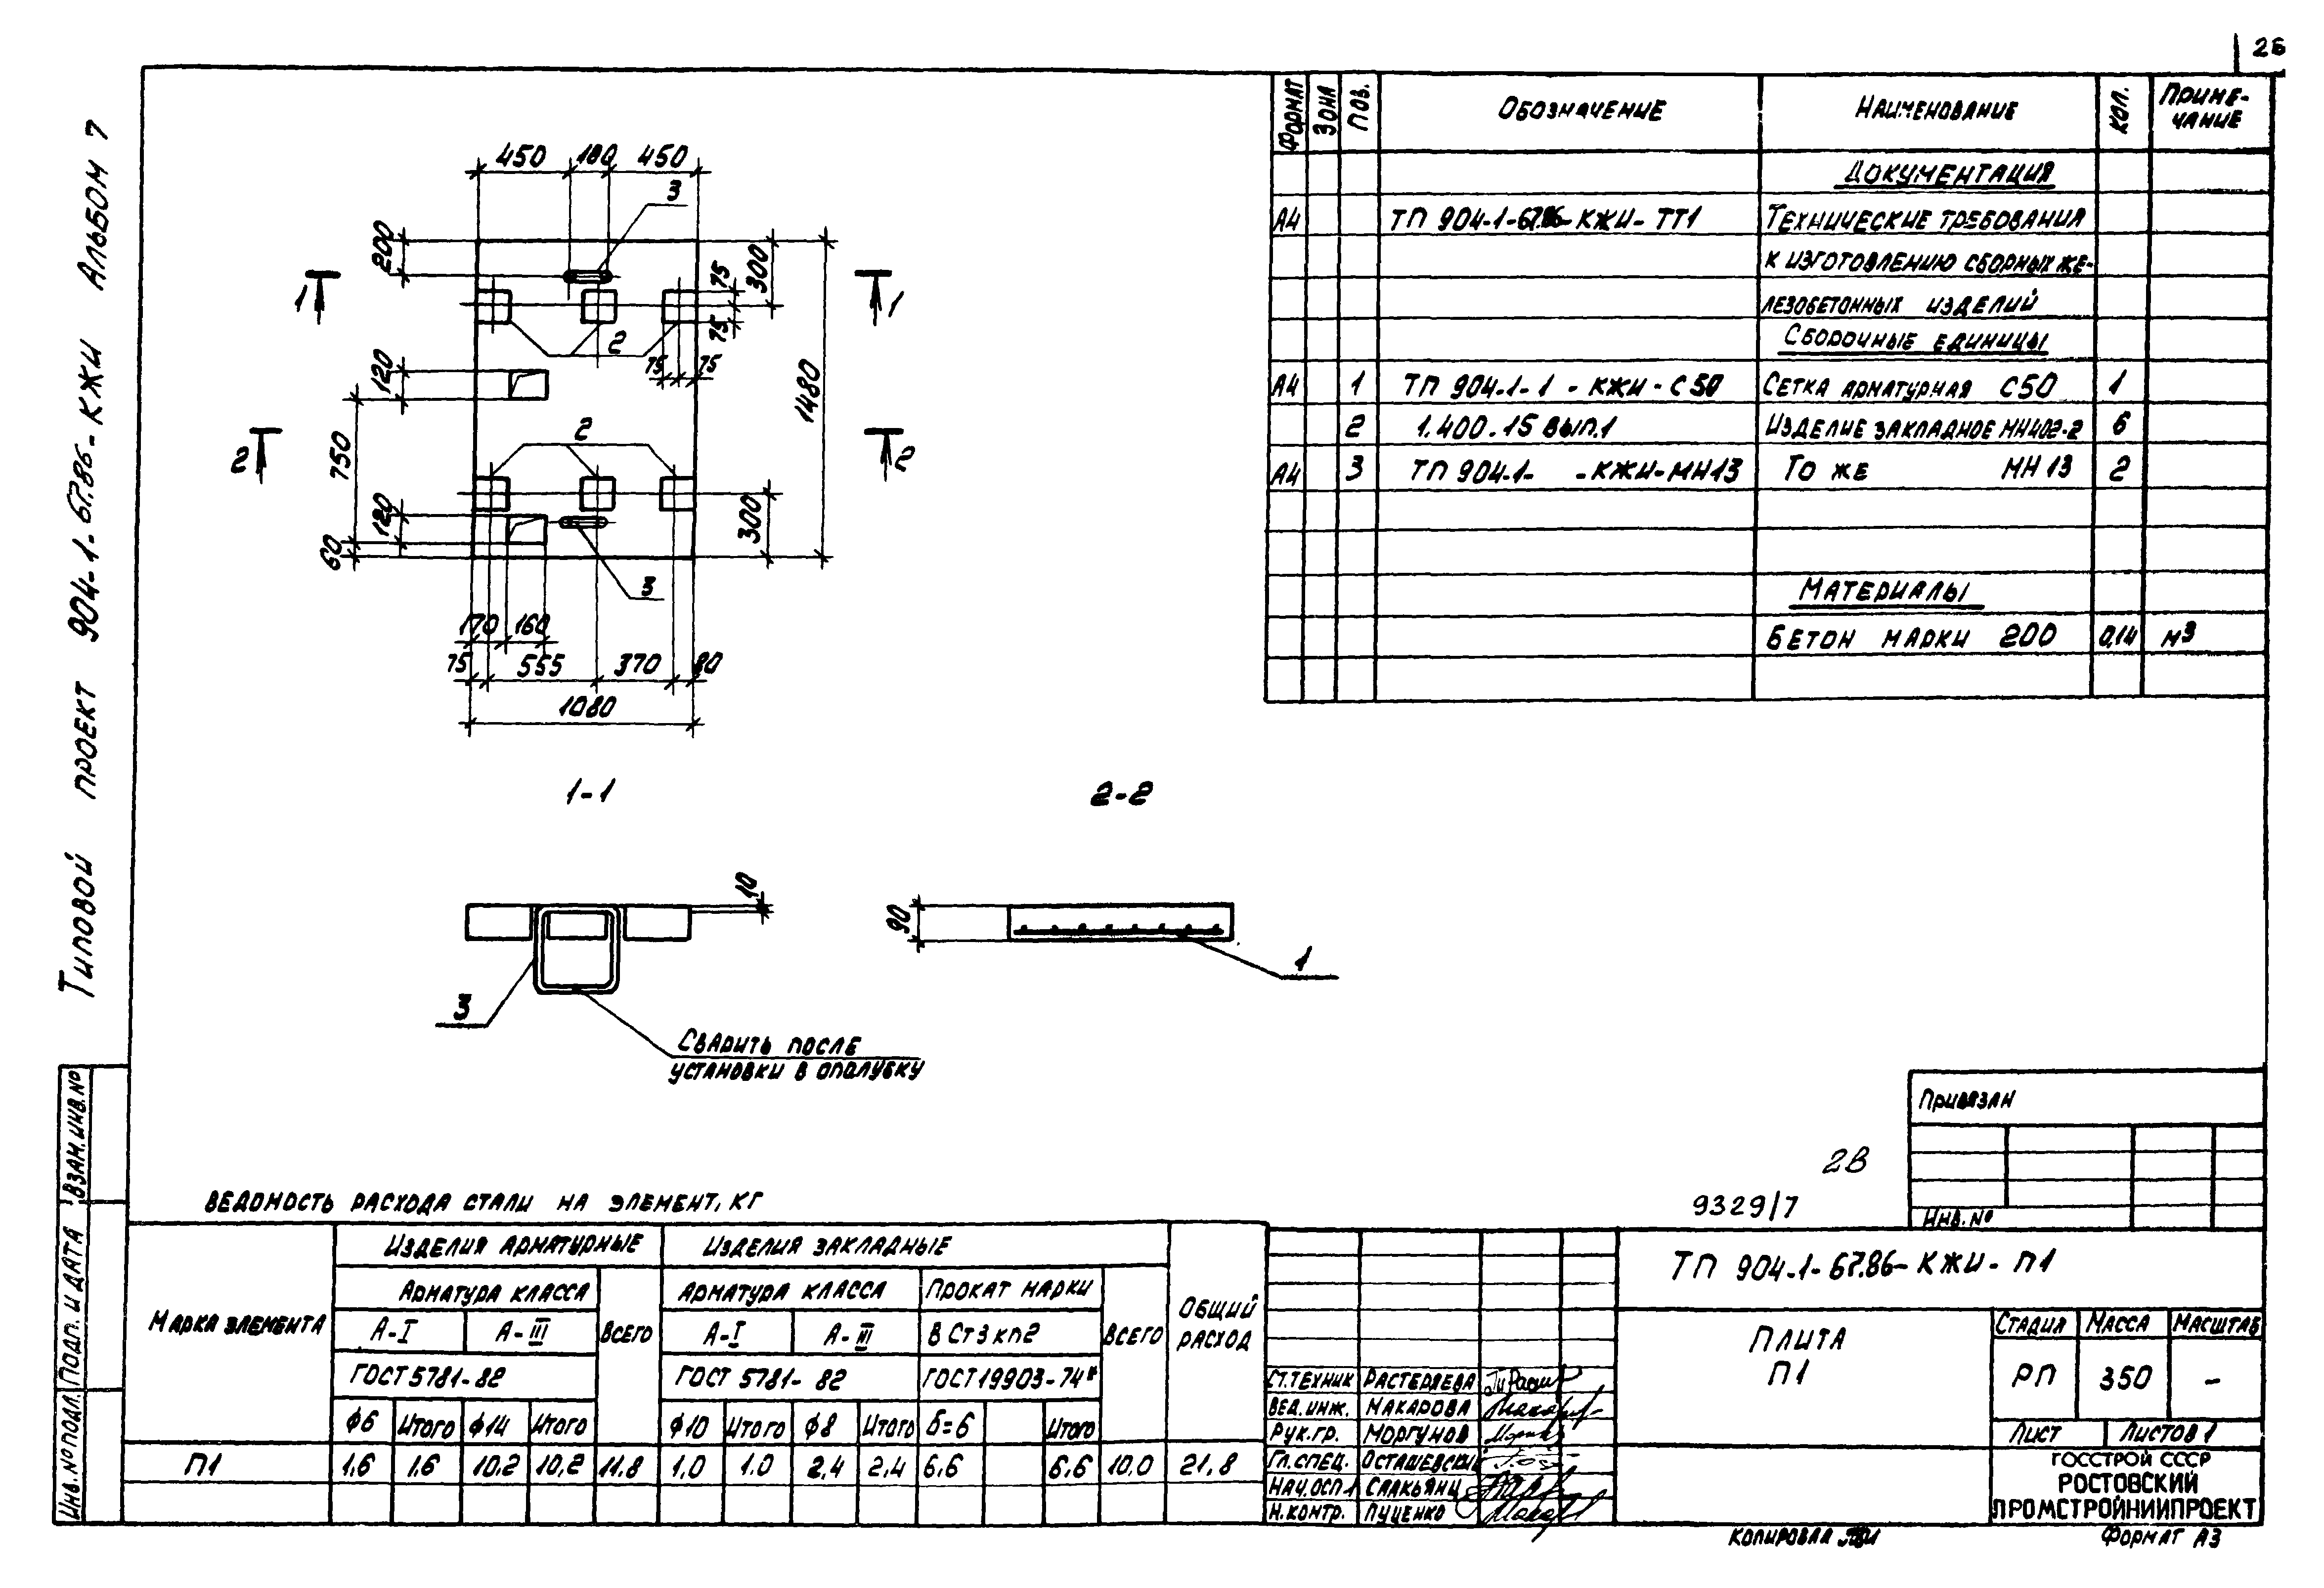 26
Типовой проект 904-1-67.86-КЖИ Альбом 7
450 180 450
3
200
300
75
75
1 1
2
75 75
120
1480
750
2 2
2
120
60
300
3
170 160
75 555 370 80
1080
1-1
2-2
10
90
3
1
Сварить после
установки в опалубку
Формат Зона Поз. Обозначение Наименование Кол. Приме-
чание
Документация
А4 ТП 904-1-67.86-КЖИ-ТТ1 Технические требования
к изготовлению сборных же-
лезобетонных изделий
Сборочные единицы
А4 1 ТП 904-1-1-КЖИ-С50 Сетка арматурная С50 1
2 1.400.15 вып.1 Изделие закладное МН402-2 6
А4 3 ТП 904-1- -КЖИ-МН13 То же МН13 2
Материалы
Бетон марки 200 0,14 м3
Привязан
Инв.№
2В
9329/7
Ведомость расхода стали на элемент, кг
Марка элемента Изделия арматурные Изделия закладные Общий расход
Арматура класса Всего Арматура класса Прокат марки Всего
А-I А-III А-I А-III ВСт3кп2
ГОСТ 5781-82 ГОСТ 5781-82 ГОСТ 19903-74*
ф6 Итого ф14 Итого ф10 Итого ф8 Итого δ=6 Итого
П1 1,6 1,6 10,2 10,2 11,8 1,0 1,0 2,4 2,4 6,6 6,6 10,0 21,8
ТП 904-1-67.86-КЖИ-П1
Плита
П1
Стадия Масса Масштаб
РП 350 -
Лист Листов 1
Госстрой СССР
РОСТОВСКИЙ
ПРОМСТРОЙНИИПРОЕКТ
Ст.техник Растеряева
Вед.инж. Макарова
Рук.гр. Моргунов
Гл.спец. Осташевский
Нач.осп1 Слакьянц
Н.контр. Пуценко
Копировал
Формат А3
Взам.инв.№
Подп. и дата
Инв.№подл.